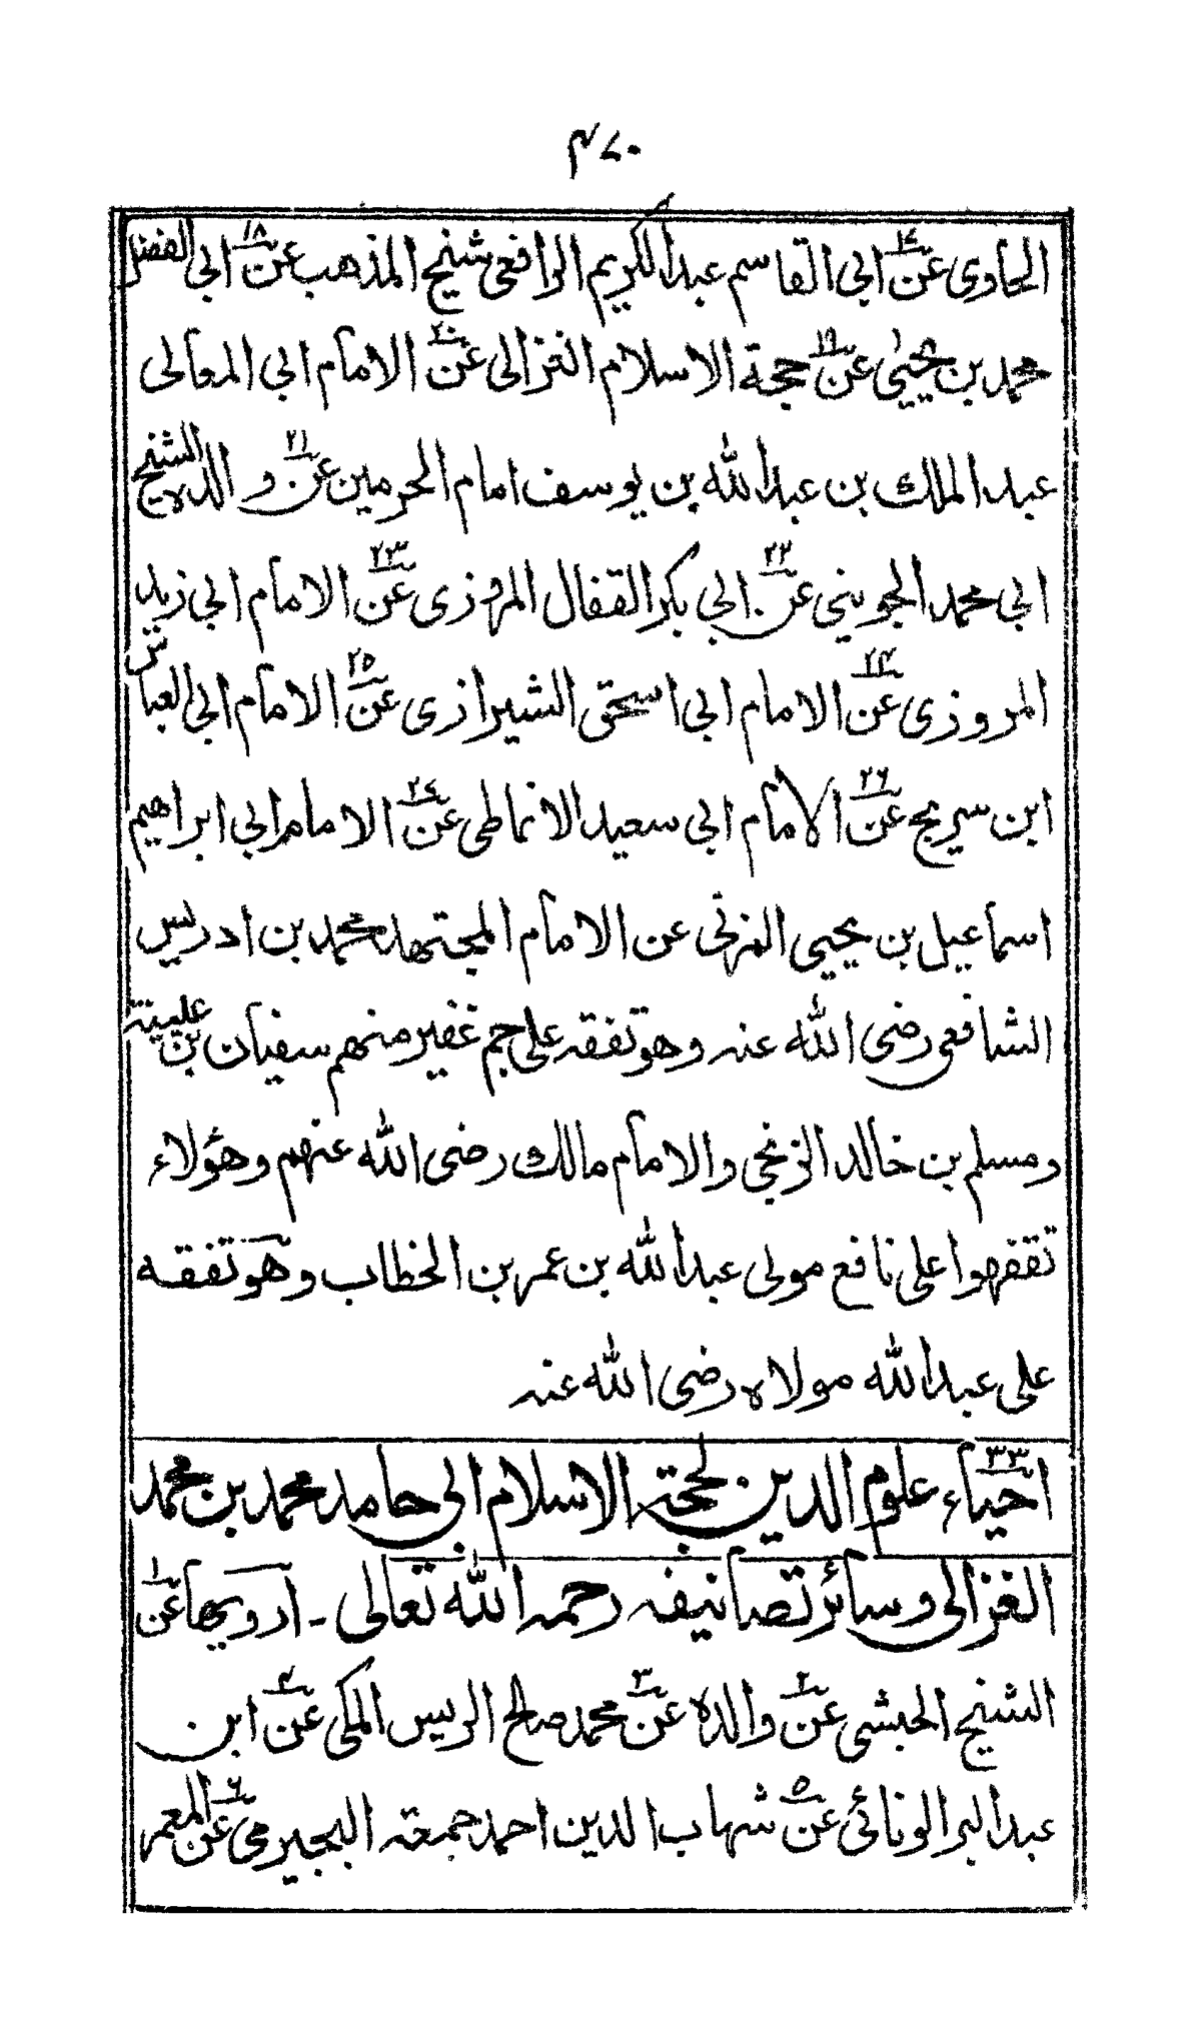 ۴۷۰
الحاوى عن۱۷ ابى القاسم عبد الكريم الرافعى شيخ المذهب عن۱۸ ابى الفضل
محمد بن يحيىٰ عن۱۹ حجة الاسلام الغزالى عن۲۰ الامام ابى المعالى
عبد الملك بن عبد الله بن يوسف امام الحرمين عن۲۱ والده الشيخ
ابى محمد الجوينى عن۲۲ ابى بكر القفال المروزى عن۲۳ الامام ابى زيد
المروزى عن۲۴ الامام ابى اسحٰق الشيرازى عن۲۵ الامام ابى العباس
ابن سريج عن۲۶ الامام ابى سعيد الانماطى عن۲۷ الامام ابى ابراهيم
اسماعيل بن يحيى المزنى عن الامام المجتهد محمد بن ادريس
الشافعى رضى الله عنه وهو تفقه على جم غفير منهم سفيان بن عيينة
ومسلم بن خالد الزنجى والامام مالك رضى الله عنهم وهؤلاء
تفقهوا على نافع مولى عبد الله بن عمر بن الخطاب وهو تفقه
على عبد الله مولاه رضى الله عنه
۳۳ احياء علوم الدين لحجة الاسلام ابى حامد محمد بن محمد
الغزالى وسائر تصانيفه رحمه الله تعالى ـ ارويها عن۱
الشيخ الحبشى عن۲ والده عن۳ محمد صالح الريس المكى عن۴ ابن
عبد البر الونائى عن۵ شهاب الدين احمد جمعه البجيرمى عن۶ المعمر